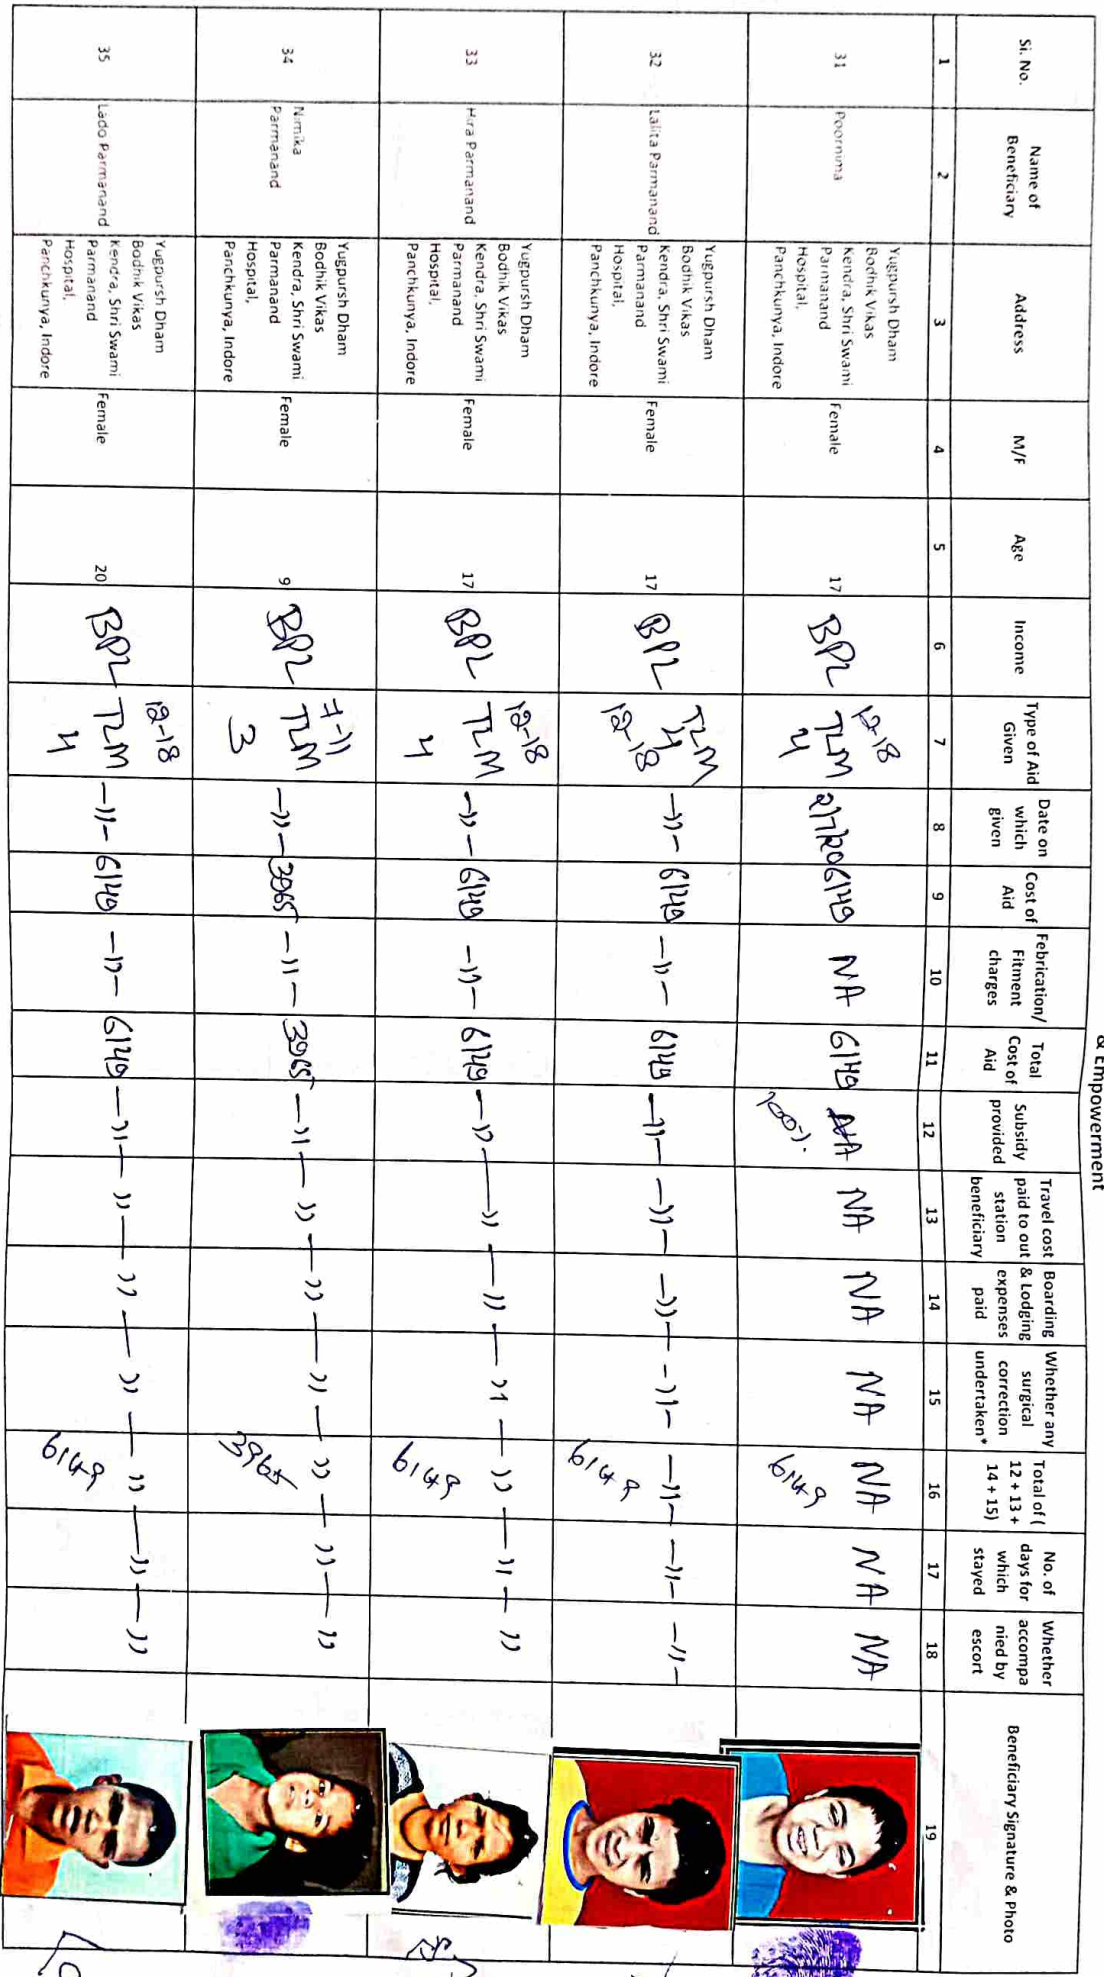 & Empowerment
Si. No.
Name of
Beneficiary
Address
M/F
Age
Income
Type of Aid
Given
Date on
which
given
Cost of
Aid
Febrication/
Fitment
charges
Total
Cost of
Aid
Subsidy
provided
Travel cost
paid to out
station
beneficiary
Boarding
& Lodging
expenses
paid
Whether any
surgical
correction
undertaken*
Total of (
12 + 13 +
14 + 15)
No. of
days for
which
stayed
Whether
accompa
nied by
escort
Beneficiary Signature & Photo
1 2 3 4 5 6 7 8 9 10 11 12 13 14 15 16 17 18 19
31
Poornima
Yugpursh Dham
Bodhik Vikas
Kendra, Shri Swami
Parmanand
Hospital,
Panchkunya, Indore
Female
17
BPL
12-18
TLM
4
2/7/20
6149
NA
6149
NA
100%
NA
NA
NA
NA
6149
NA
NA
32
Lalita Parmanand
Yugpursh Dham
Bodhik Vikas
Kendra, Shri Swami
Parmanand
Hospital,
Panchkunya, Indore
Female
17
BPL
TLM
4
12-18
-"-
6149
-"-
6149
-"-
-"-
-"-
-"-
-"-
6149
-"-
-"-
33
Hira Parmanand
Yugpursh Dham
Bodhik Vikas
Kendra, Shri Swami
Parmanand
Hospital,
Panchkunya, Indore
Female
17
BPL
12-18
TLM
4
-"-
6149
-"-
6149
-"-
-"-
-"-
-"-
-"-
6149
-"-
-"
34
Nimika
Parmanand
Yugpursh Dham
Bodhik Vikas
Kendra, Shri Swami
Parmanand
Hospital,
Panchkunya, Indore
Female
9
BPL
7-11
TLM
3
-"-
3965
-"-
3965
-"-
-"-
-"-
-"-
-"-
3965
-"-
-"
35
Lado Parmanand
Yugpursh Dham
Bodhik Vikas
Kendra, Shri Swami
Parmanand
Hospital,
Panchkunya, Indore
Female
20
BPL
12-18
TLM
4
-"-
6149
-"-
6149
-"-
-"-
-"-
-"-
-"-
6149
-"-
-"